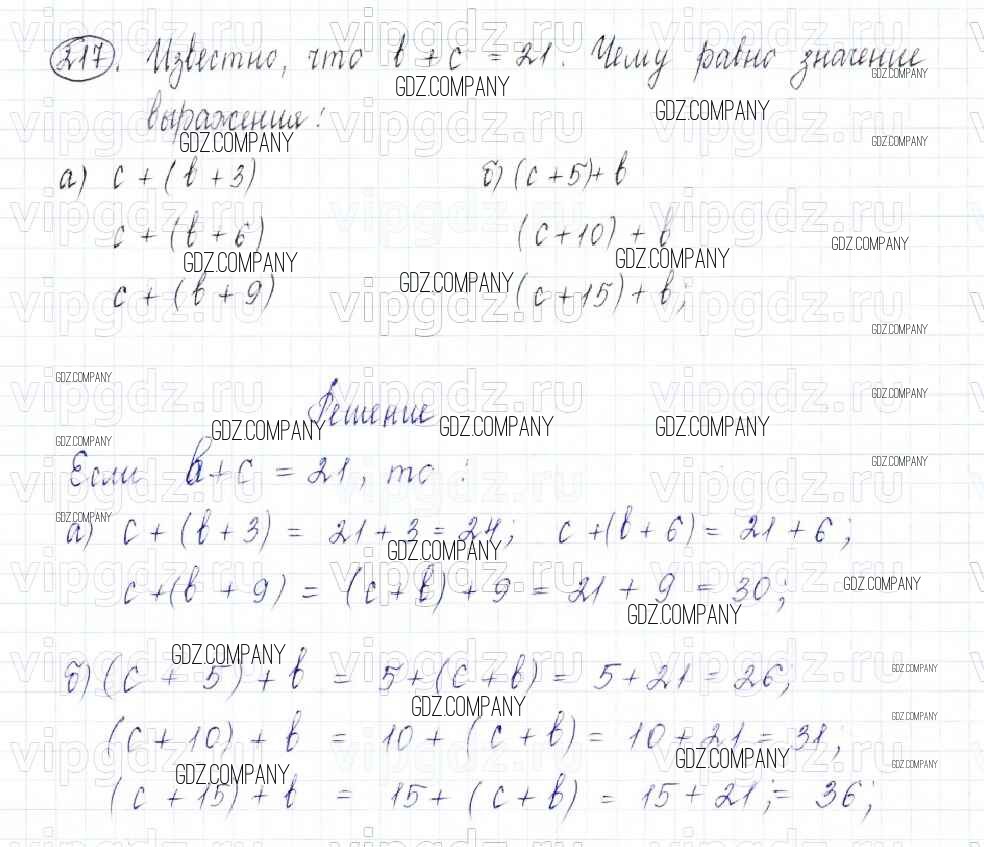 217. Известно, что b + c = 21. Чему равно значение
выражения:
а) c + (b + 3) б) (c + 5) + b
c + (b + 6) (c + 10) + b
c + (b + 9) (c + 15) + b;
Решение
Если b + c = 21, то :
а) c + (b + 3) = 21 + 3 = 24; c + (b + 6) = 21 + 6;
c + (b + 9) = (c + b) + 9 = 21 + 9 = 30;
б) (c + 5) + b = 5 + (c + b) = 5 + 21 = 26;
(c + 10) + b = 10 + (c + b) = 10 + 21 = 31;
(c + 15) + b = 15 + (c + b) = 15 + 21;= 36;